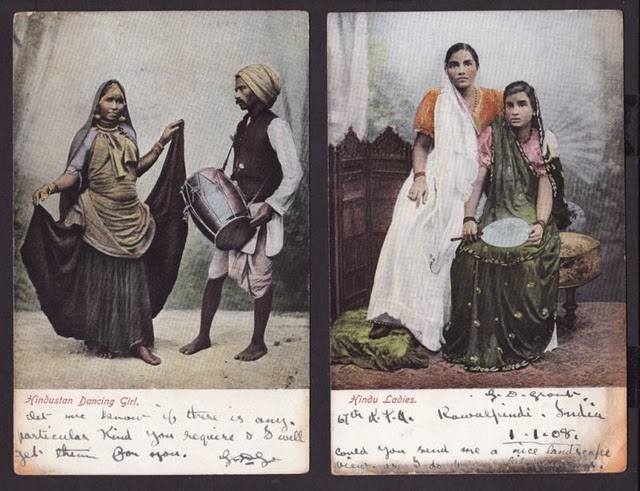 Hindustan Dancing Girl.
Let me know if there is any
particular kind you require & I will
get them for you.
Hindu Ladies.
Rawalpindi. India
1.1.08.
Could you send me a nice landscape
view as I do